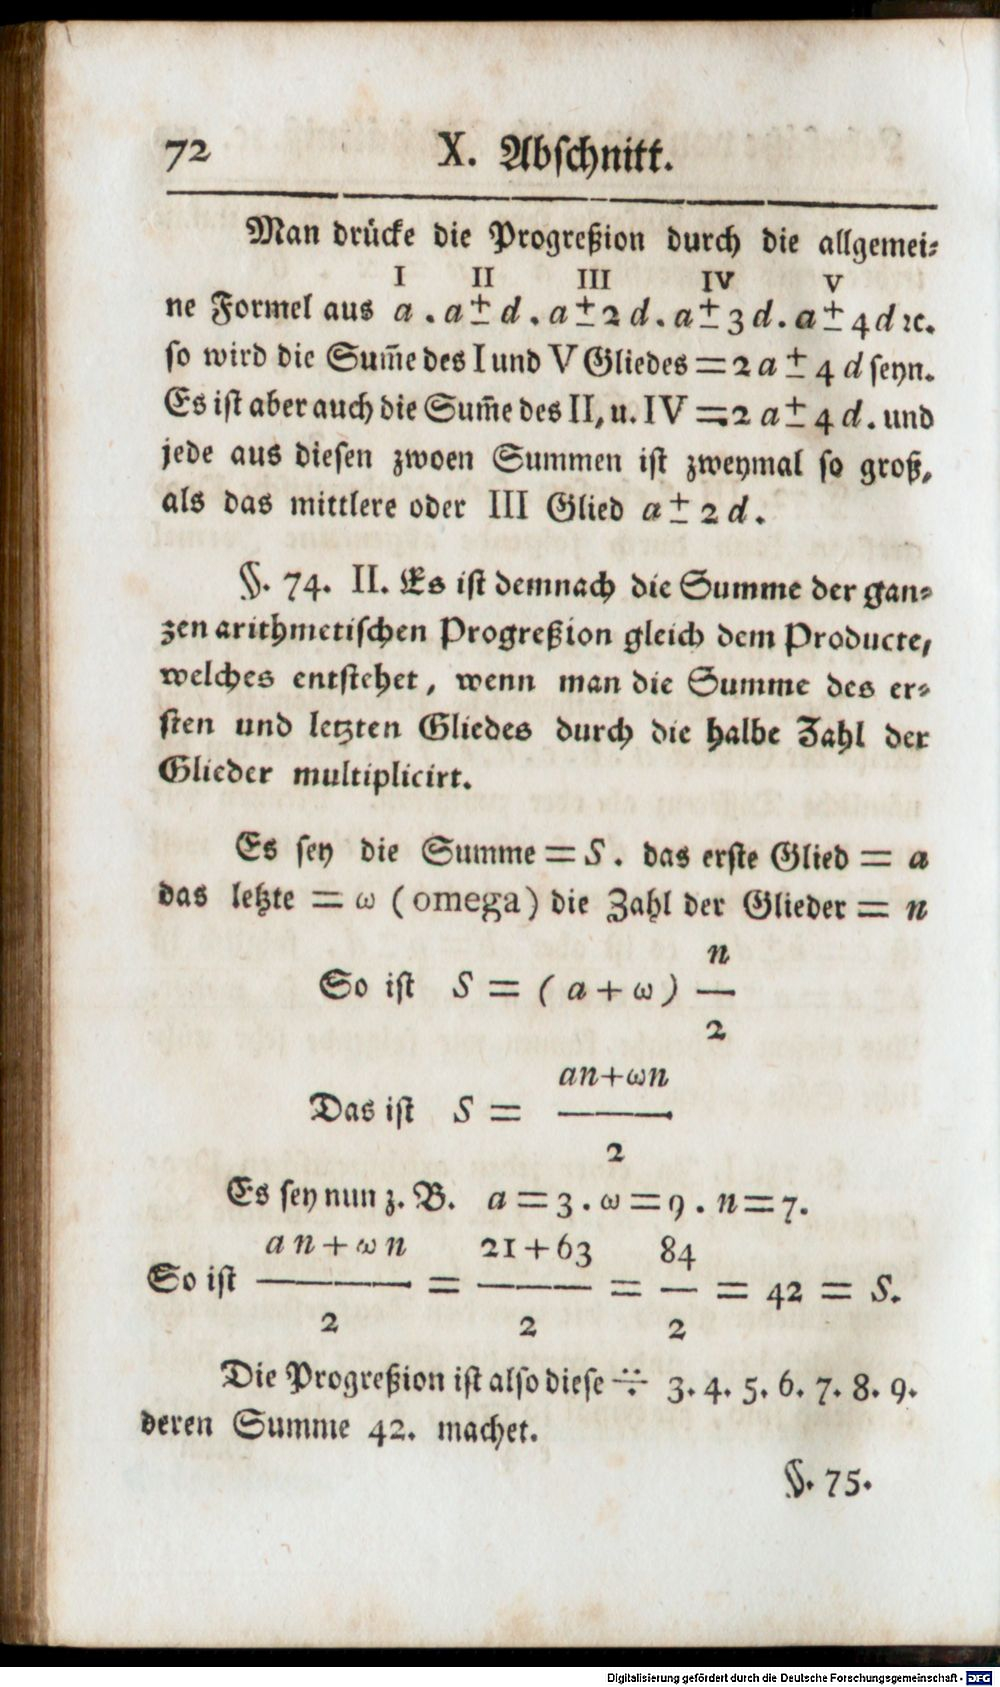 72 X. Abſchnitt.
Man drücke die Progreßion durch die allgemei⸗
I II III IV V
ne Formel aus a . a ± d . a ± 2 d . a ± 3 d . a ± 4 d ꝛc.
ſo wird die Sum̃e des I und V Gliedes = 2 a ± 4 d ſeyn.
Es iſt aber auch die Sum̃e des II, u. IV = 2 a ± 4 d . und
jede aus dieſen zwoen Summen iſt zweymal ſo groß,
als das mittlere oder III Glied a ± 2 d .
§. 74. II. Es iſt demnach die Summe der gan⸗
zen arithmetiſchen Progreßion gleich dem Producte,
welches entſtehet, wenn man die Summe des er⸗
ſten und letzten Gliedes durch die halbe Zahl der
Glieder multiplicirt.
Es ſey die Summe = S . das erſte Glied = a
das letzte = ω ( omega ) die Zahl der Glieder = n
n
So iſt S = ( a + ω ) —
2
an+ωn
Das iſt S = ———
2
Es ſey nun z. B. a = 3 . ω = 9 . n = 7.
a n + ω n 21 + 63 84
So iſt ——— = ——— = — = 42 = S.
2 2 2
Die Progreßion iſt alſo dieſe ÷ 3. 4. 5. 6. 7. 8. 9.
deren Summe 42. machet.
§. 75.
Digitalisierung gefördert durch die Deutsche Forschungsgemeinschaft - DFG